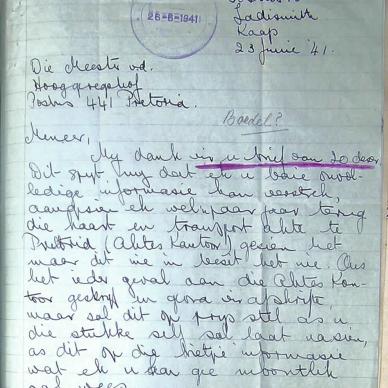 26-6-1941
Ladismith
Kaap
23 Junie '41.
Die Meester v.d.
Hooggeregshof
Posbus 441 Pretoria.
Boedel?
Meneer,
My dank vir u brief van 20 deser
Dit spyt my dat ek u baie onvol-
ledige informasie kan verstrek,
aangesien ek welin jaar terug
die kaart en transport akte te
Pretoria (Aktes Kantoor) gesien het
maar dit nie in besit het nie. Ons
het ieder geval aan die Aktes Kan-
toor geskryf en gevra vir afskrifte,
maar sal dit op prys stel as u
die stukke self sal laat nasien,
as dit op die bietjie informasie
wat ek u kan gee moontlik
sal wees